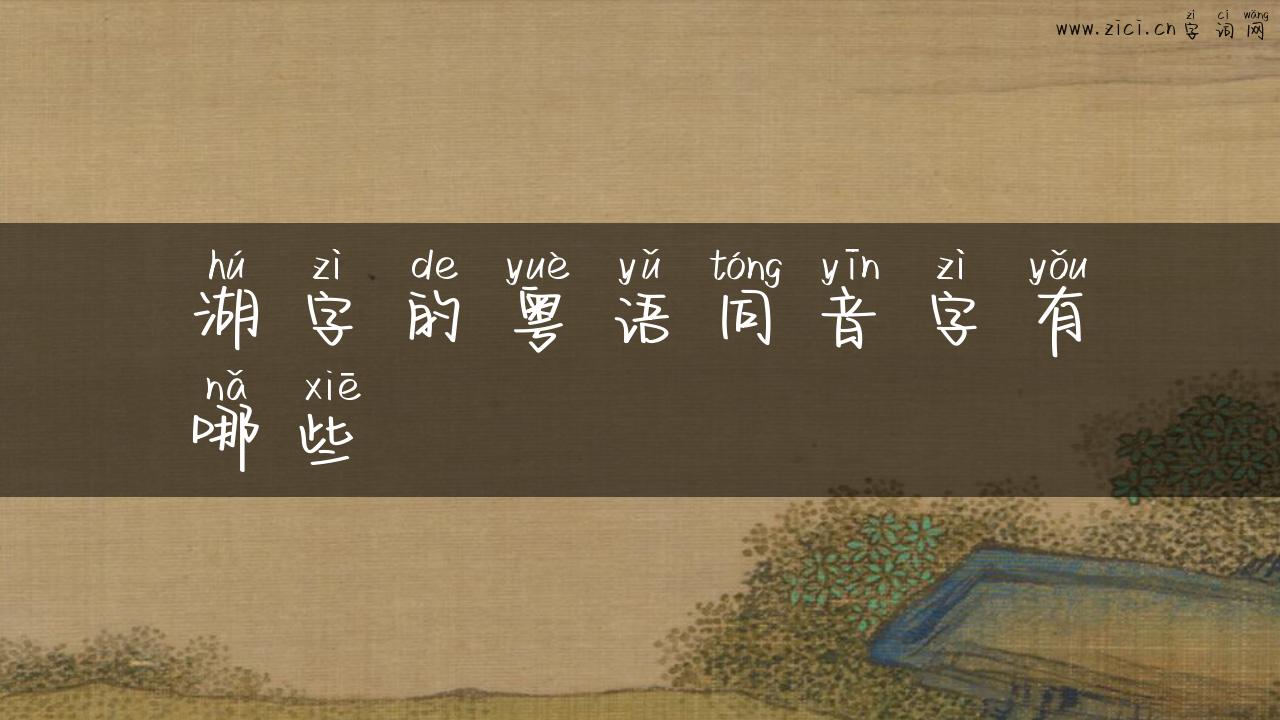 zì cí wǎng
www.zici.cn 字 词 网
hú zì de yuè yǔ tóng yīn zì yǒu
湖 字 的 粤 语 同 音 字 有
nǎ xiē
哪 些